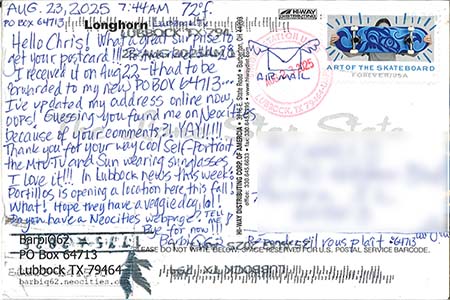 AUG. 23, 2025 7:44AM 72°F
PO BOX 64713
Longhorn
LUBBOCK TX 794
Hello Chris! What a great surprise to
get your postcard!!!
I received it on Aug 22—it had to be
forwarded to my new PO BOX 64713...
I've updated my address online now
oops! Guessing you found me on Neocities
because of your comments?! YAY!!!!!
Thank you for your way cool Self-Portrait
the MTV-TV and Sun wearing sunglasses
I love it!!! In Lubbock news this week:
Portillos is opening a location here this fall!
What! Hope they have a veggie dog, lol!
Do you have a Neocities webpage? TELL me!
Bye for now!!!
Barbig62
PO Box 64713
Lubbock TX 79464
barbig62.neocities.or
HI-WAY
DISTRIBUTING
HI-WAY DISTRIBUTING CORP. OF AMERICA
AIR MAIL
2025
LUBBOCK, TX
ART OF THE SKATEBOARD
FOREVER/USA
PLEASE DO NOT WRITE BELOW. SPACE RESERVED FOR U.S. POSTAL SERVICE BARCODE.
Barbig62
sil vous plait
64713